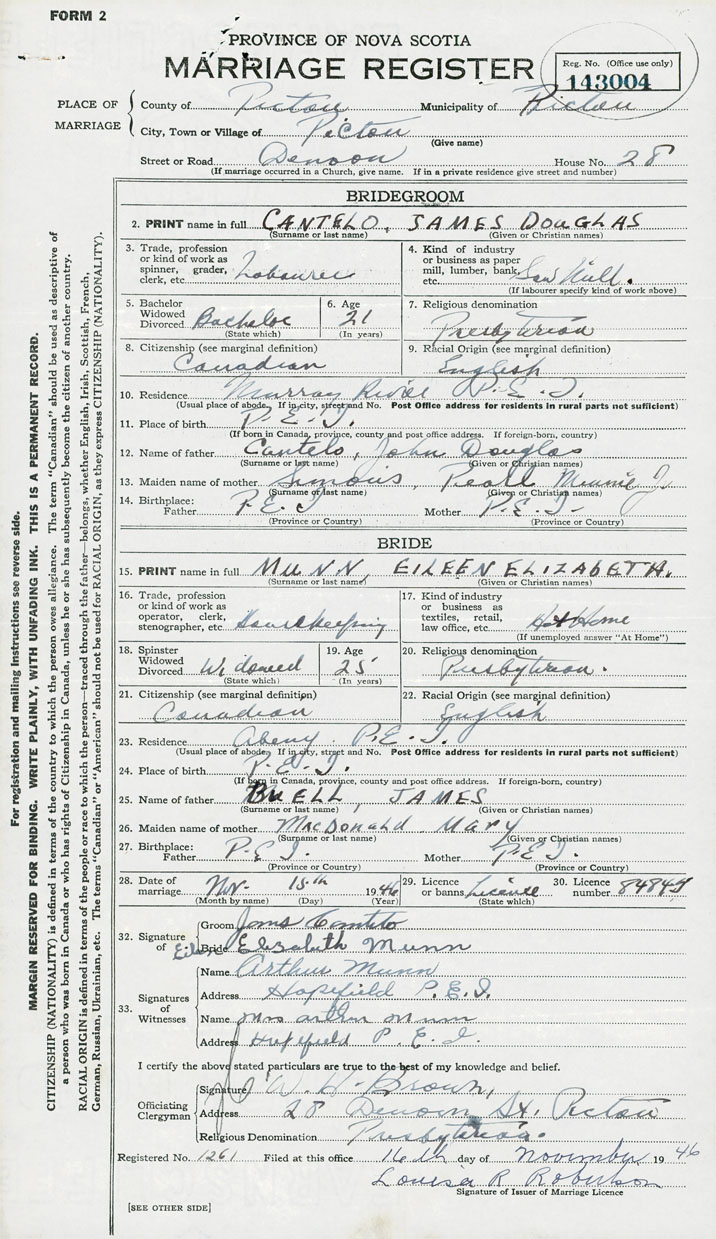 FORM 2
PROVINCE OF NOVA SCOTIA
MARRIAGE REGISTER
Reg. No. (Office use only)
143004
PLACE OF MARRIAGE
County of Pictou Municipality of Pictou
City, Town or Village of Pictou
(Give name)
Street or Road Denoon House No. 28
(If marriage occurred in a Church, give name. If in a private residence give street and number)
BRIDEGROOM
2. PRINT name in full CANTELO, JAMES DOUGLAS
(Surname or last name) (Given or Christian names)
3. Trade, profession or kind of work as spinner, grader, clerk, etc. Labourer
4. Kind of industry or business as paper mill, lumber, bank, etc. Saw Mill.
(If labourer specify kind of work above)
5. Bachelor Widowed Divorced Bachelor
(State which)
6. Age 21
(In years)
7. Religious denomination
Presbyterian
8. Citizenship (see marginal definition)
Canadian
9. Racial Origin (see marginal definition)
English
10. Residence Murray River P.E.I.
(Usual place of abode. If in city, street and No. Post Office address for residents in rural parts not sufficient)
11. Place of birth P.E.I.
(If born in Canada, province, county and post office address. If foreign-born, country)
12. Name of father Cantelo, John Douglas
(Surname or last name) (Given or Christian names)
13. Maiden name of mother Simons, Pearl Minnie J.
(Surname or last name) (Given or Christian names)
14. Birthplace: Father P.E.I Mother P.E.I.
(Province or Country) (Province or Country)
BRIDE
15. PRINT name in full MUNN, EILEEN ELIZABETH.
(Surname or last name) (Given or Christian names)
16. Trade, profession or kind of work as operator, clerk, stenographer, etc. Housekeeping
17. Kind of industry or business as textiles, retail, law office, etc. At Home
(If unemployed answer "At Home")
18. Spinster Widowed Divorced Widowed
(State which)
19. Age 25
(In years)
20. Religious denomination
Presbyterian.
21. Citizenship (see marginal definition)
Canadian
22. Racial Origin (see marginal definition)
English
23. Residence Abney P.E.I.
(Usual place of abode. If in city, street and No. Post Office address for residents in rural parts not sufficient)
24. Place of birth P.E.I.
(If born in Canada, province, county and post office address. If foreign-born, country)
25. Name of father BUELL, JAMES
(Surname or last name) (Given or Christian names)
26. Maiden name of mother MacDonald Mary
(Surname or last name) (Given or Christian names)
27. Birthplace: Father P.E.I. Mother P.E.I.
(Province or Country) (Province or Country)
28. Date of marriage Nov. 15th 1946
(Month by name) (Day) (Year)
29. Licence or banns License
(State which)
30. Licence number 84847
32. Signature of
Groom James Cantelo
Bride Eileen Elizabeth Munn
33. Signatures of Witnesses
Name Arthur Munn
Address Hopefield P.E.I.
Name Mrs Arthur Munn
Address Hopefield P.E.I.
I certify the above stated particulars are true to the best of my knowledge and belief.
Officiating Clergyman
Signature W. H. Brown,
Address 28 Denoon St. Pictou
Religious Denomination Presbyterian.
Registered No. 1261 Filed at this office 16th day of November 1946
Louisa R Robertson
Signature of Issuer of Marriage Licence
[SEE OTHER SIDE]
For registration and mailing instructions see reverse side.
MARGIN RESERVED FOR BINDING. WRITE PLAINLY, WITH UNFADING INK. THIS IS A PERMANENT RECORD.
CITIZENSHIP (NATIONALITY) is defined in terms of the country to which the person owes allegiance. The term "Canadian" should be used as descriptive of
a person who was born in Canada or who has rights of Citizenship in Canada, unless he or she has subsequently become the citizen of another country.
RACIAL ORIGIN is defined in terms of the people or race to which the person—traced through the father—belongs, whether English, Irish, Scottish, French,
German, Russian, Ukrainian, etc. The terms "Canadian" or "American" should not be used for RACIAL ORIGIN, as they express CITIZENSHIP (NATIONALITY).